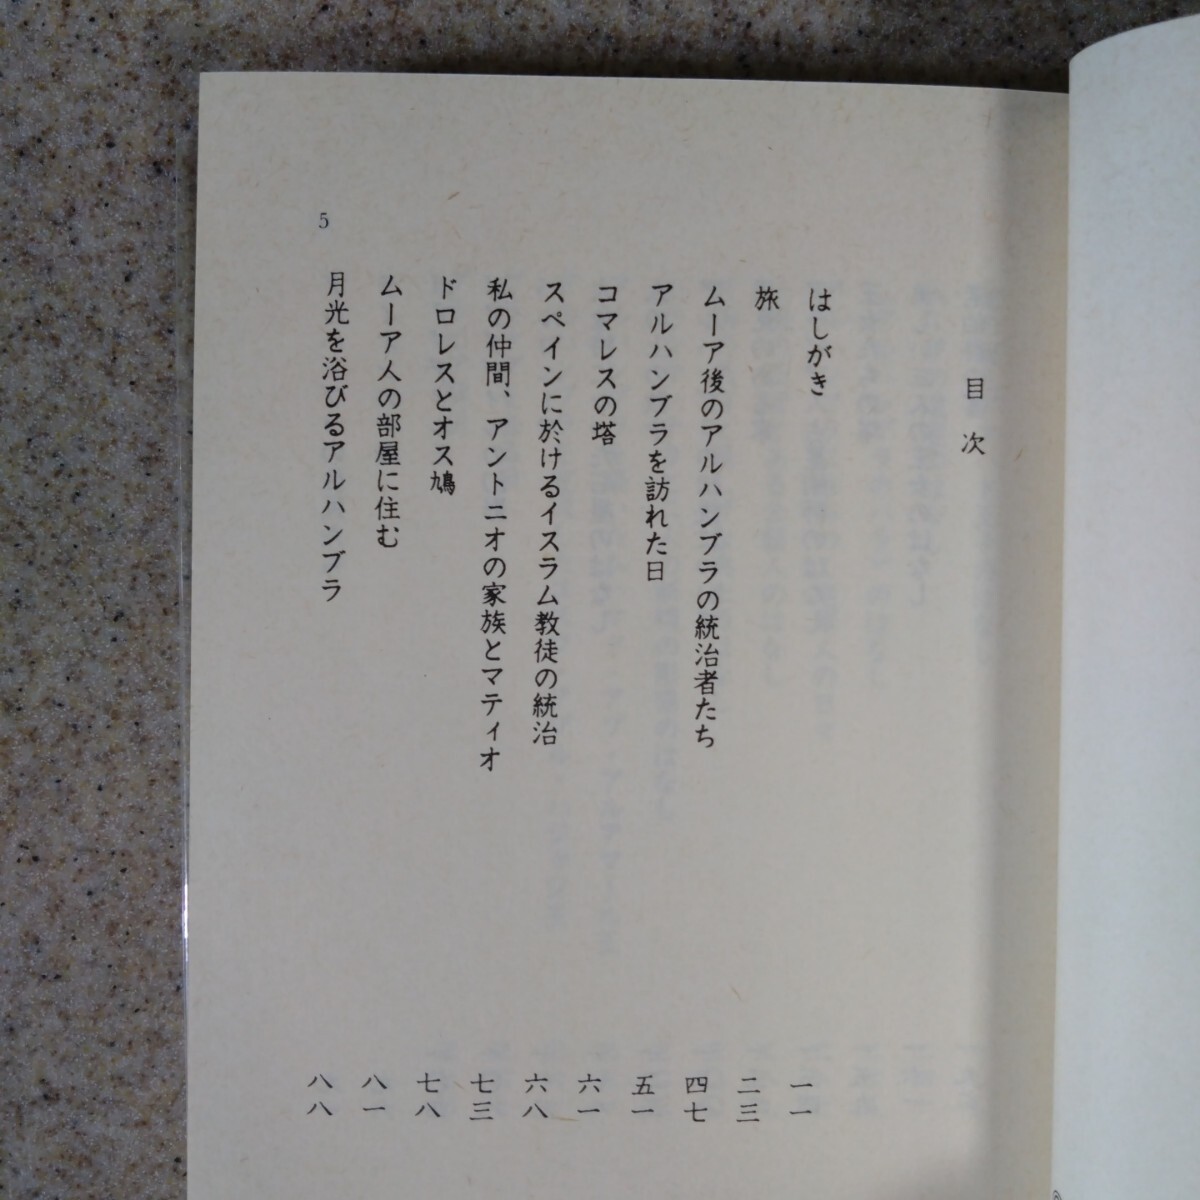 目次
はしがき 一一
旅 二三
ムーア後のアルハンブラの統治者たち 四七
アルハンブラを訪れた日 五一
コマレスの塔 六一
スペインに於けるイスラム教徒の統治 六八
私の仲間、アントニオの家族とマティオ 七三
ドロレスとオス鳩 七八
ムーア人の部屋に住む 八一
月光を浴びるアルハンブラ 八八
5